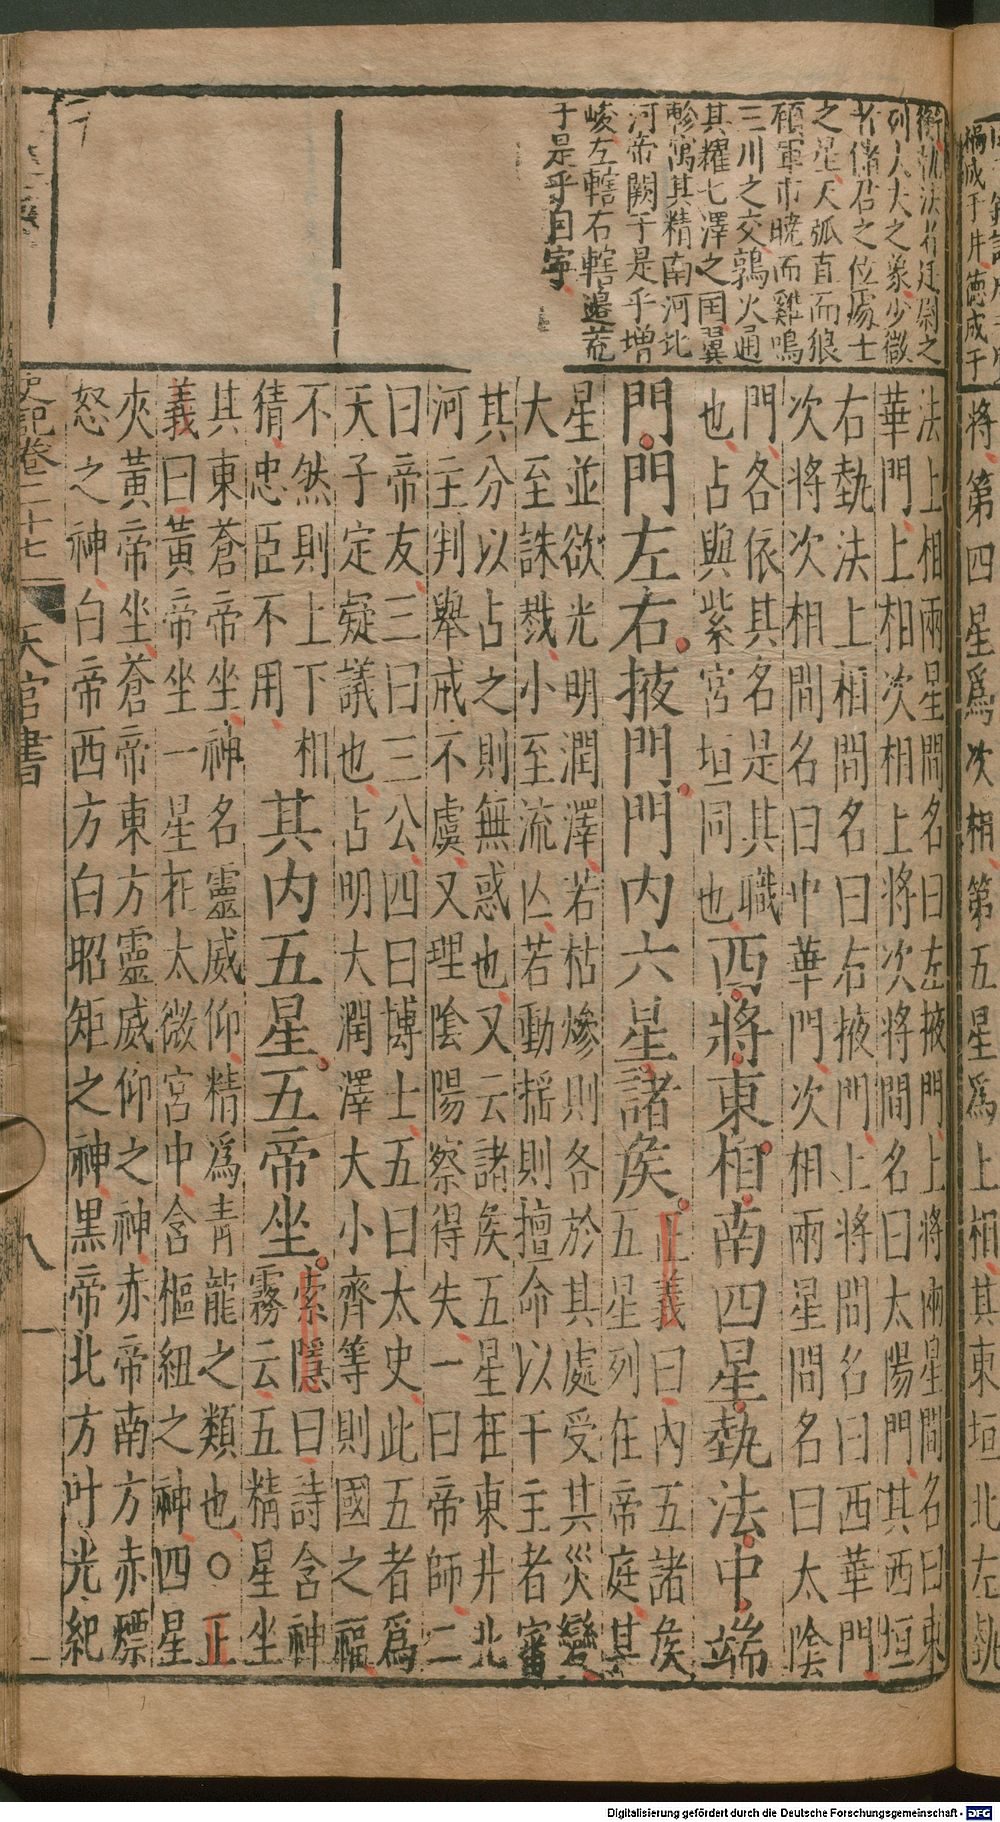 禍成于井德成于
將第四星爲次相第五星爲上相其東垣北左執
衡執法者廷尉之
列大夫之象少微
者儲君之位處士
之星天弧直而狼
顧軍市曉而雞鳴
三川之交鶉火通
其耀七澤之国翼
軫寓其精南河北
河帝闕于是乎增
峻左轄右轄邉荒
于是乎自寧
法上相兩星間名曰左掖門上將兩星間名曰東
華門上相次相上將次將間名曰太陽門其西垣
右執法上相間名曰右掖門上將間名曰西華門
次將次相間名曰中華門次相兩星間名曰太陰
門各依其名是其職
也占與紫宮垣同也
西將東相南四星執法中端
門門左右掖門門内六星諸侯
正義曰內五諸侯
五星列在帝庭其
星並欲光明潤澤若枯燥則各於其處受其災變
大至誅戮小至流亡若動揺則擅命以干主者審
其分以占之則無惑也又云諸侯五星在東井北
河主判舉戒不虞又理陰陽察得失一曰帝師二
曰帝友三曰三公四曰博士五曰太史此五者爲
天子定疑議也占明大潤澤大小齊等則國之福
不然則上下相
猜忠臣不用
其内五星五帝坐
索隱曰詩含神
霧云五精星坐
其東蒼帝坐神名靈威仰精爲青龍之類也○正
義曰黃帝坐一星在太微宮中含樞紐之神四星
夾黃帝坐蒼帝東方靈威仰之神赤帝南方赤熛
怒之神白帝西方白昭矩之神黑帝北方叶光紀
史記卷二十七 天官書 八一
Digitalisierung gefördert durch die Deutsche Forschungsgemeinschaft - DFG